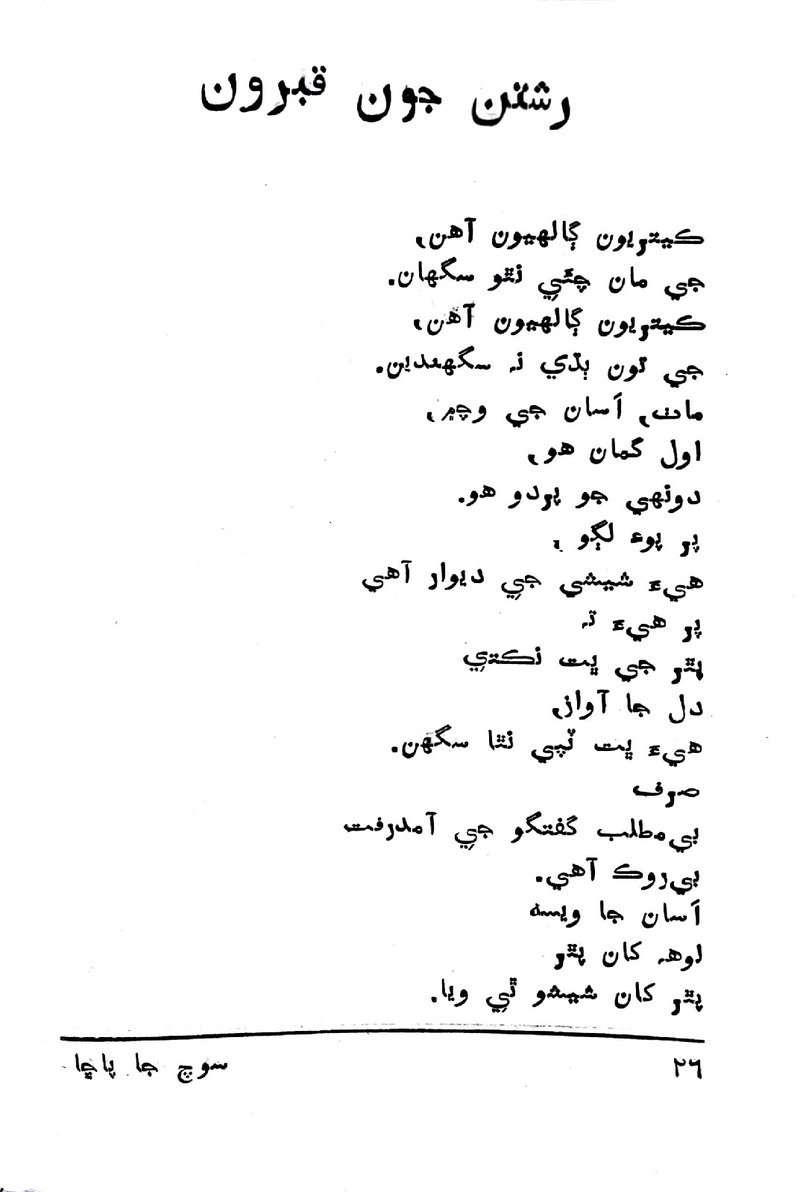 رشتن جون قبرون
ڪيتريون ڳالهيون آهن،
جي مان چئي نٿو سگهان.
ڪيتريون ڳالهيون آهن،
جي تون ٻڌي نہ سگهندين.
ماٺ، اَسان جي وچ۾،
اول گمان هو،
دونهي جو پردو هو.
پر پوءِ لڳو ،
هيءَ شيشي جي ديوار آهي
پر هيءَ تہ
پٿر جي ڀت نڪتي
دل جا آواز،
هيءَ ڀت ٽپي نٿا سگهن.
صرف
بي‌مطلب گفتگو جي آمدرفت
بي‌روڪ آهي.
اَسان جا ويسہ
لوهہ کان پٿر
پٿر کان شيشو ٿي ويا.
٢٦
سوچ جا پاڇا